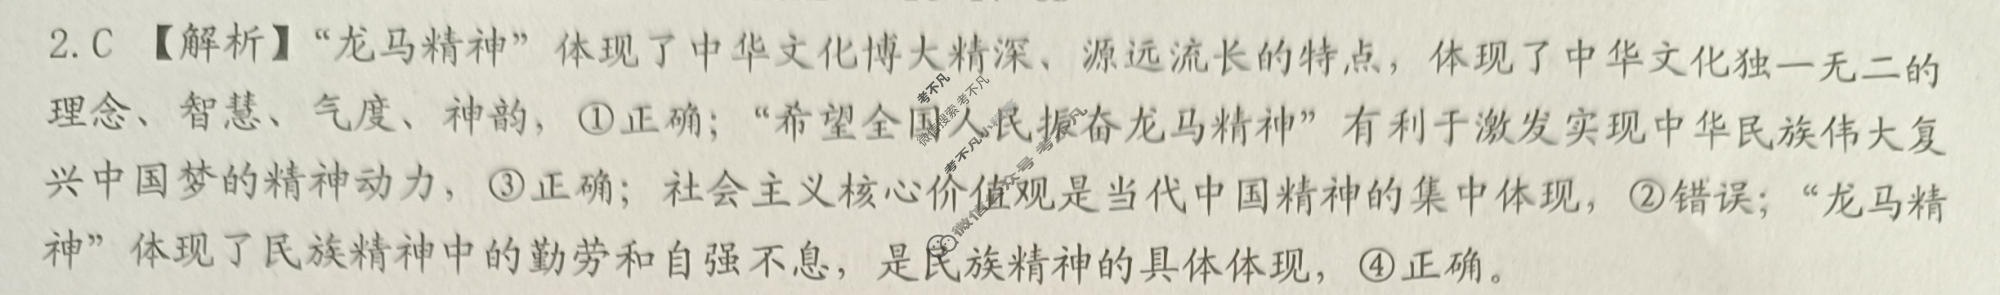 2.C 【解析】“龙马精神”体现了中华文化博大精深、源远流长的特点，体现了中华文化独一无二的
理念、智慧、气度、神韵，①正确；“希望全国人民振奋龙马精神”有利于激发实现中华民族伟大复
兴中国梦的精神动力，③正确；社会主义核心价值观是当代中国精神的集中体现，②错误；“龙马精
神”体现了民族精神中的勤劳和自强不息，是民族精神的具体体现，④正确。